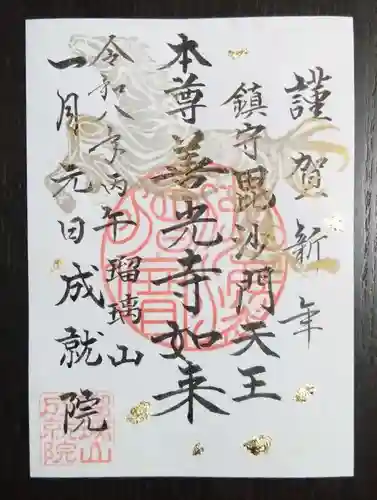 謹賀新年
鎮守毘沙門天王
本尊善光寺如来
令和八年丙午
一月元日
瑠璃山
成就院